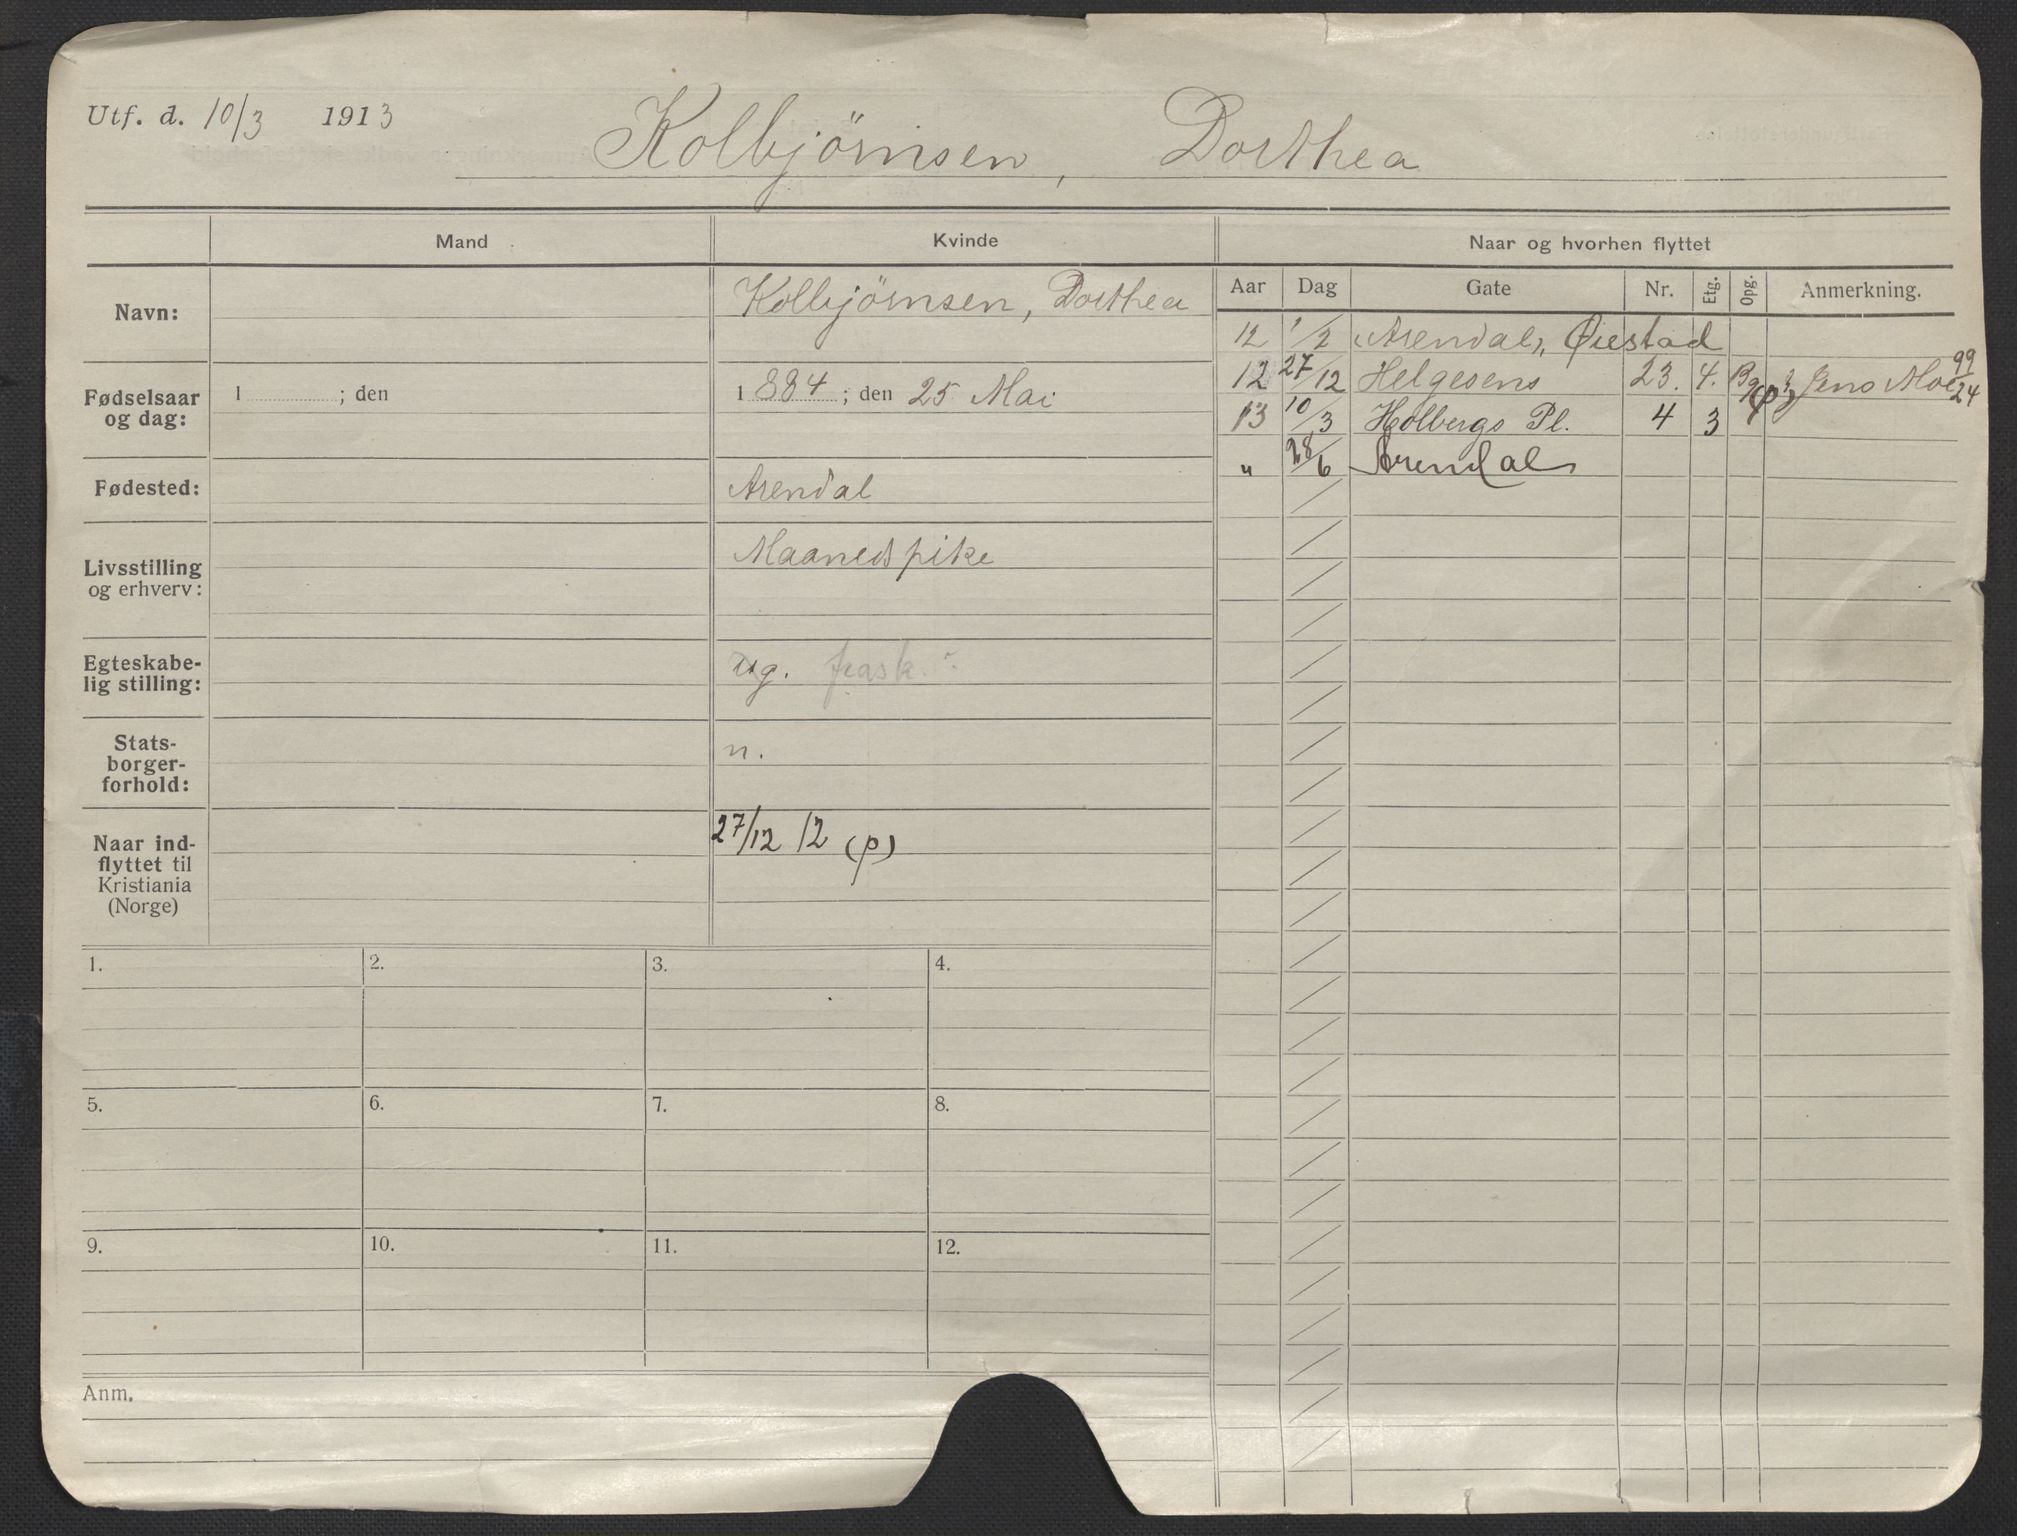 Utf. d. 10/3 1913
Kolbjörnsen, Dorthea
Mand
Kvinde
Naar og hvorhen flyttet
Navn:
Kolbjörnsen, Dorthea
Fødselsaar og dag:
1 ; den
1 884 ; den 25 Mai
Fødested:
Arendal
Livsstilling og erhverv:
Maanedspike
Egteskabe-
lig stilling:
ug. frask.
Stats-
borger-
forhold:
n.
Naar ind-
flyttet til
Kristiania
(Norge)
27/12 12 (p)
Aar Dag Gate Nr. Etg. Opg. Anmerkning.
12 1/2 Arendal, Øiestad
12 27/12 Helgesens 23. 4. Bg (p) Jens Moe 99/24
13 10/3 Holbergs Pl. 4 3
" 28/6 Arendal
1. 2. 3. 4.
5. 6. 7. 8.
9. 10. 11. 12.
Anm.